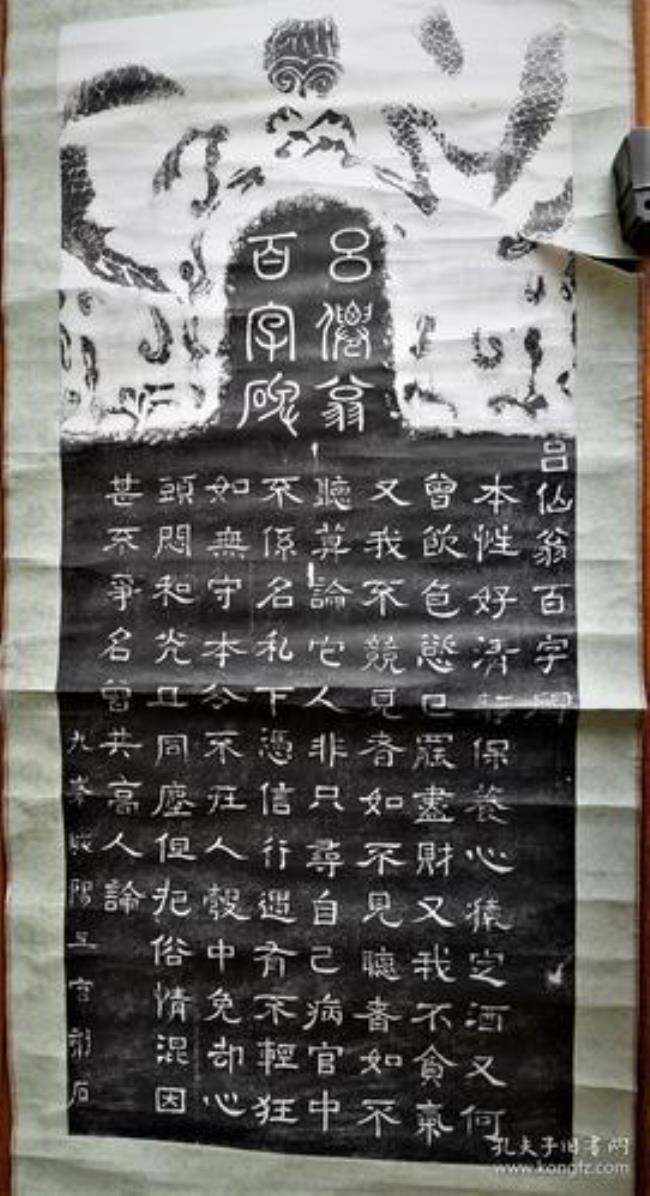 呂僊翁
百字碑
呂仙翁百字碑
本性好清保養心猿定酒又何
曾飲色慾已罷盡財又我不貪氣
又我不競見者如不見聽者如不
聽莫論它人非只尋自己病官中
不係名私下憑信行遇有不輕狂
如無守本分不在人彀中免却心
頭悶和光且同塵但把俗情混因
甚不爭名曾共高人論
九峯 陽 石
孔夫子旧书网
www.kongfz.com